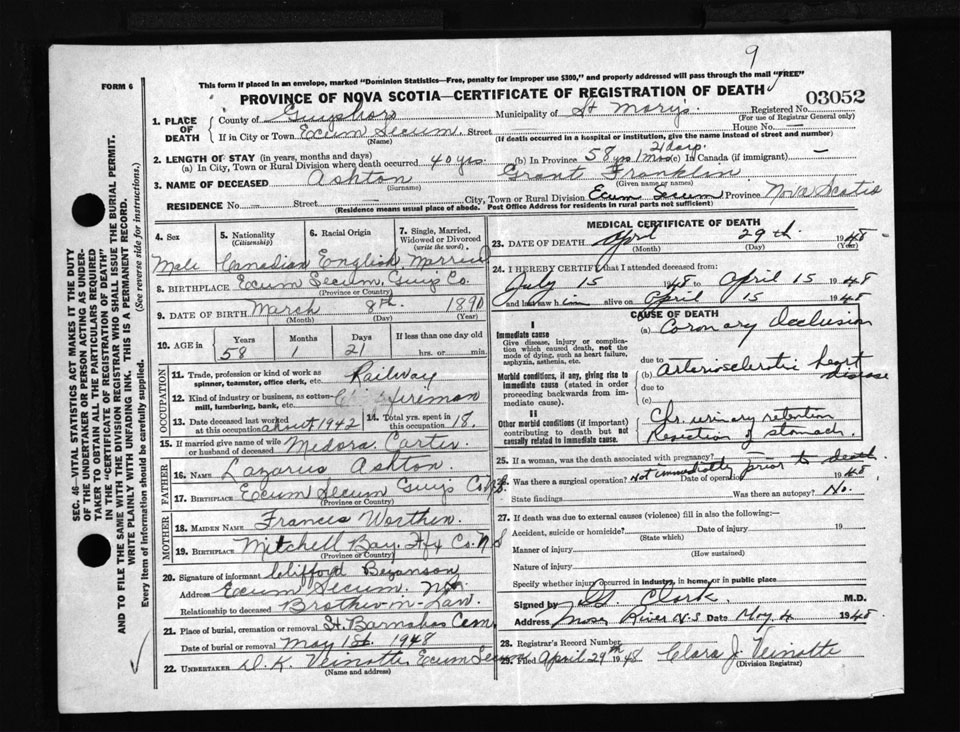 9
FORM 6
This form if placed in an envelope, marked "Dominion Statistics—Free, penalty for improper use $300," and properly addressed will pass through the mail "FREE"
PROVINCE OF NOVA SCOTIA—CERTIFICATE OF REGISTRATION OF DEATH
03052
1. PLACE OF DEATH County of Guysboro Municipality of St Mary's Registered No.
(For use of Registrar General only)
If in City or Town Ecum Secum Street House No. —
(Name) (If death occurred in a hospital or institution, give the name instead of street and number)
2. LENGTH OF STAY (in years, months and days)
(a) In City, Town or Rural Division where death occurred 40 yrs. (b) In Province 58 yrs 1 Mos 21 days. (c) In Canada (if immigrant) —
3. NAME OF DECEASED Ashton Grant Franklin
(Surname) (Given name or names)
RESIDENCE No. — Street — City, Town or Rural Division Ecum Secum Province Nova Scotia
(Residence means usual place of abode. Post Office Address for residents in rural parts not sufficient)
4. Sex
Male
5. Nationality
(Citizenship)
Canadian
6. Racial Origin
English
7. Single, Married, Widowed or Divorced
(write the word).
Married
8. BIRTHPLACE Ecum Secum, Guys Co.
(Province or Country)
9. DATE OF BIRTH March 8th 1890
(Month) (Day) (Year)
10. AGE in Years Months Days If less than one day old
58 1 21 hrs. or min.
OCCUPATION
11. Trade, profession or kind of work as spinner, teamster, office clerk, etc. Railway
12. Kind of industry or business, as cotton-mill, lumbering, bank, etc. Fireman
13. Date deceased last worked at this occupation about 1942
14. Total yrs. spent in this occupation 18.
15. If married give name of wife or husband of deceased Medora Carter
FATHER
16. NAME Lazarus Ashton
17. BIRTHPLACE Ecum Secum Guys Co. N.S.
(Province or Country)
MOTHER
18. MAIDEN NAME Frances Worthen.
19. BIRTHPLACE Mitchell Bay. Hfx Co. N S
(Province or Country)
20. Signature of informant Clifford Bezanson
Address Ecum Secum. N.S.
Relationship to deceased Brother-in-Law.
21. Place of burial, cremation or removal St. Barnabas Cem.
Date of burial or removal May 1st. 1948
22. UNDERTAKER D. K. Veinotte Ecum Secum
(Name and address)
MEDICAL CERTIFICATE OF DEATH
23. DATE OF DEATH April 29th. 1948
(Month) (Day) (Year)
24. I HEREBY CERTIFY that I attended deceased from
July 15 1948 to April 15 1948
and last saw him alive on April 15 1948
CAUSE OF DEATH
I
Immediate cause
Give disease, injury or complication which caused death, not the mode of dying, such as heart failure, asphyxia, asthenia, etc.
(a) Coronary Occlusion
due to
Morbid conditions, if any, giving rise to immediate cause (stated in order proceeding backwards from immediate cause).
(b) Arteriosclerotic heart disease
due to
(c)
II
Other morbid conditions (if important) contributing to death but not causally related to immediate cause.
Chr. urinary retention
Resection of stomach.
25. If a woman, was the death associated with pregnancy?
26. Was there a surgical operation? Not immediately prior to death. Date of operation 1948
State findings Was there an autopsy? No.
27. If death was due to external causes (violence) fill in also the following:—
Accident, suicide or homicide? Date of injury 19
(State which)
Manner of injury
(How sustained)
Nature of injury
Specify whether injury occurred in industry, in home, or in public place
Signed by Clark. M.D.
Address Moser River N.S Date May 4 1948
28. Registrar's Record Number
29. Filed April 29th 1948 Clara J. Veinotte
(Division Registrar)
SEC. 46—VITAL STATISTICS ACT MAKES IT THE DUTY
OF THE UNDERTAKER OR PERSON ACTING AS UNDERTAKER TO OBTAIN ALL THE PARTICULARS REQUIRED
IN THE "CERTIFICATE OF REGISTRATION OF DEATH"
AND TO FILE THE SAME WITH THE DIVISION REGISTRAR WHO SHALL ISSUE THE BURIAL PERMIT.
WRITE PLAINLY WITH UNFADING INK. THIS IS A PERMANENT RECORD.
Every item of information should be carefully supplied. (See reverse side for instructions.)